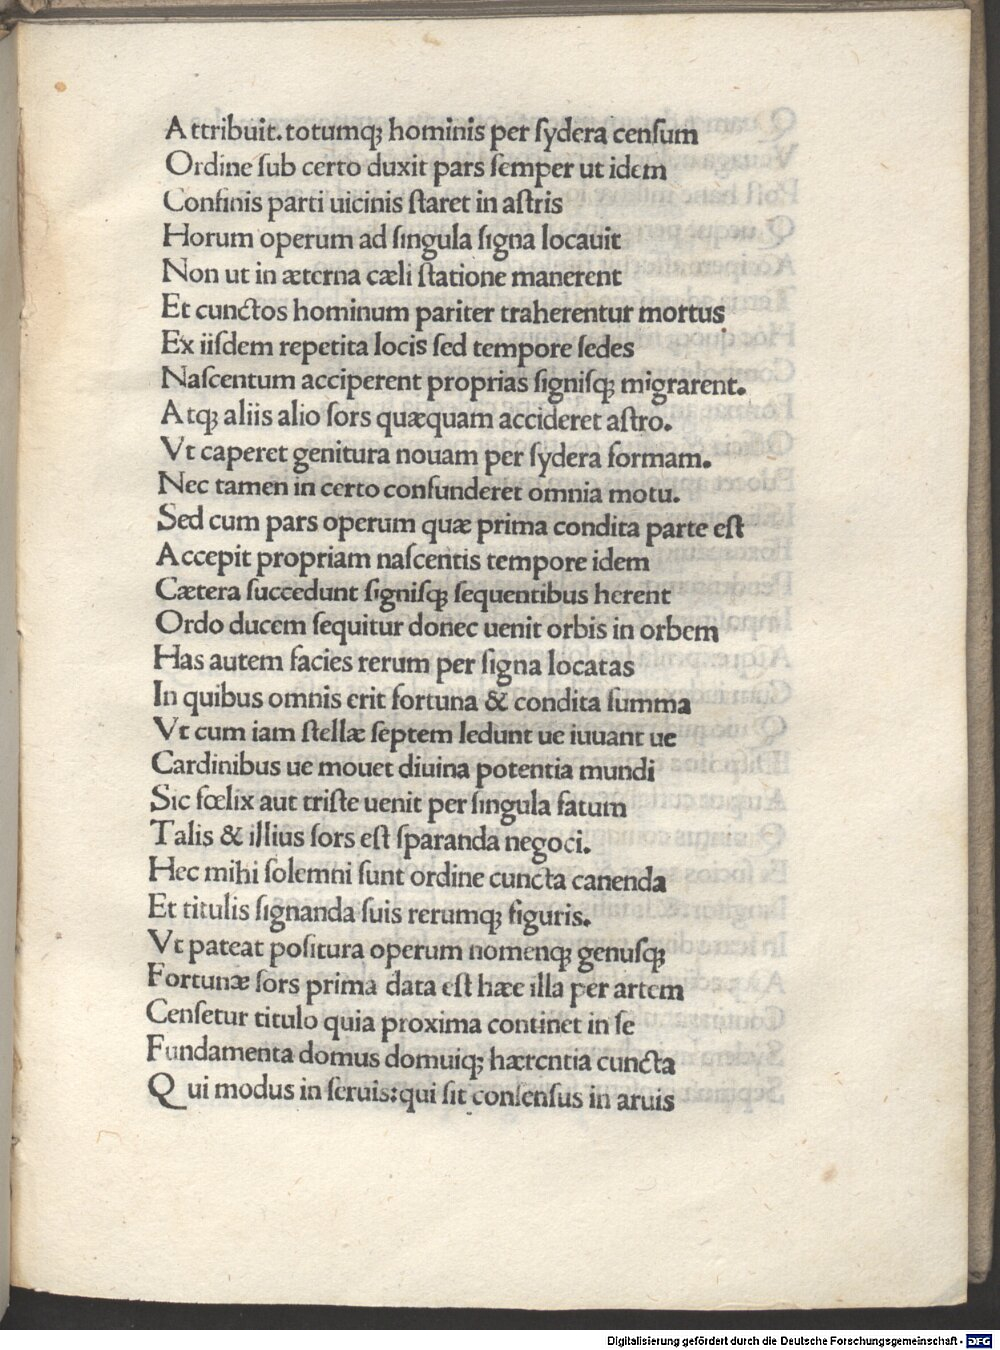 Attribuit. totumqꝫ hominis per ſydera cenſum
Ordine ſub certo duxit pars ſemper ut idem
Confinis parti uicinis ſtaret in aſtris
Horum operum ad ſingula ſigna locauit
Non ut in æterna cæli ſtatione manerent
Et cunctos hominum pariter traherentur mortus
Ex iiſdem repetita locis ſed tempore ſedes
Naſcentum acciperent proprias ſigniſqꝫ migrarent.
Atqꝫ aliis alio ſors quæquam accideret aſtro.
Vt caperet genitura nouam per ſydera formam.
Nec tamen in certo confunderet omnia motu.
Sed cum pars operum quæ prima condita parte eſt
Accepit propriam naſcentis tempore idem
Cætera ſuccedunt ſigniſqꝫ ſequentibus herent
Ordo ducem ſequitur donec uenit orbis in orbem
Has autem facies rerum per ſigna locatas
In quibus omnis erit fortuna & condita ſumma
Vt cum iam ſtellæ ſeptem ledunt ue iuuant ue
Cardinibus ue mouet diuina potentia mundi
Sic fœlix aut triſte uenit per ſingula fatum
Talis & illius ſors eſt ſparanda negoci.
Hec mihi ſolemni ſunt ordine cuncta canenda
Et titulis ſignanda ſuis rerumqꝫ figuris.
Vt pateat poſitura operum nomenqꝫ genuſqꝫ
Fortunæ ſors prima data eſt hæc illa per artem
Cenſetur titulo quia proxima continet in ſe
Fundamenta domus domuiqꝫ hærentia cuncta
Qui modus in ſeruis: qui ſit conſenſus in aruis
Digitalisierung gefördert durch die Deutsche Forschungsgemeinschaft - DFG